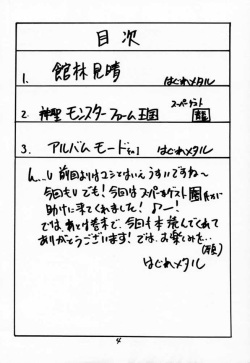 目次
1. 館林見晴
はぐれメタル
2. 神聖モンスターファーム王国
スーパーゲスト
3. アルバムモード
はぐれメタル
ん…。前回よりはマシとはいえうすいですね〜
今回も
でも!今回はスーパーゲスト
助けに来てくれました!
では、あとは巻末で、今回も本読んでくれて
ありがとうございます!では、お楽しみを…
はぐれメタル
4